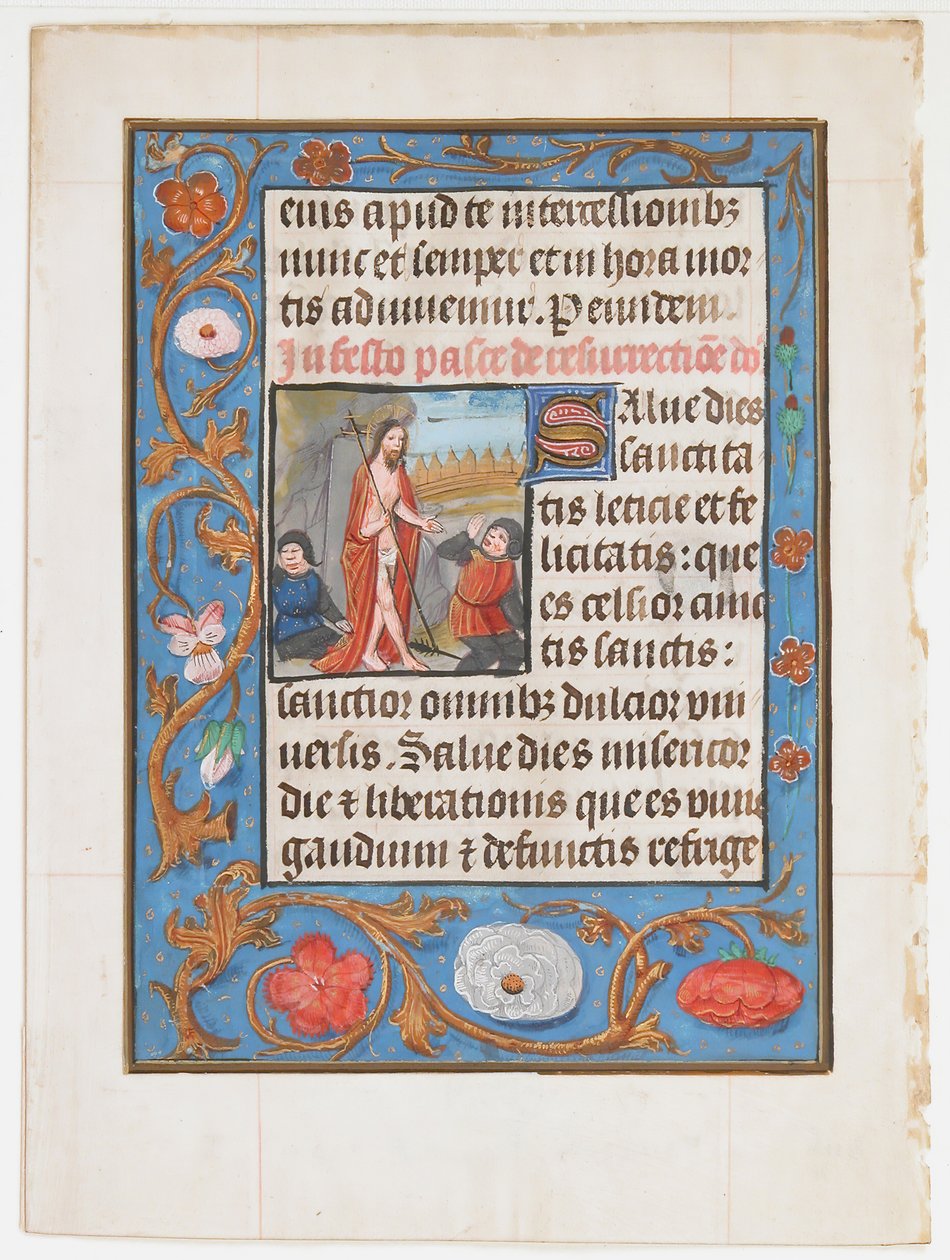 eius apud te intercessionibꝫ
nunc et semper et in hora mor
tis adiuuemur. P eundem.
In festo pasce de resurrectiōe dn̄i
SAlue dies
sanctita
tis leticie et fe
licitatis: que
es celsior cunc
tis sanctis:
sanctior omnibꝫ dulcior vni
uersis. Salue dies misericor
die ⁊ liberationis que es viuis
gaudium ⁊ defunctis refrige